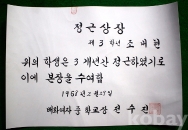 정근상장
제 3 학년 조병현
위의 학생은 3 개년간 정근하였기로
이에 본장을 수여함
1961년 2월 27일
배화여자 중 학교장 전 수 진
kobay